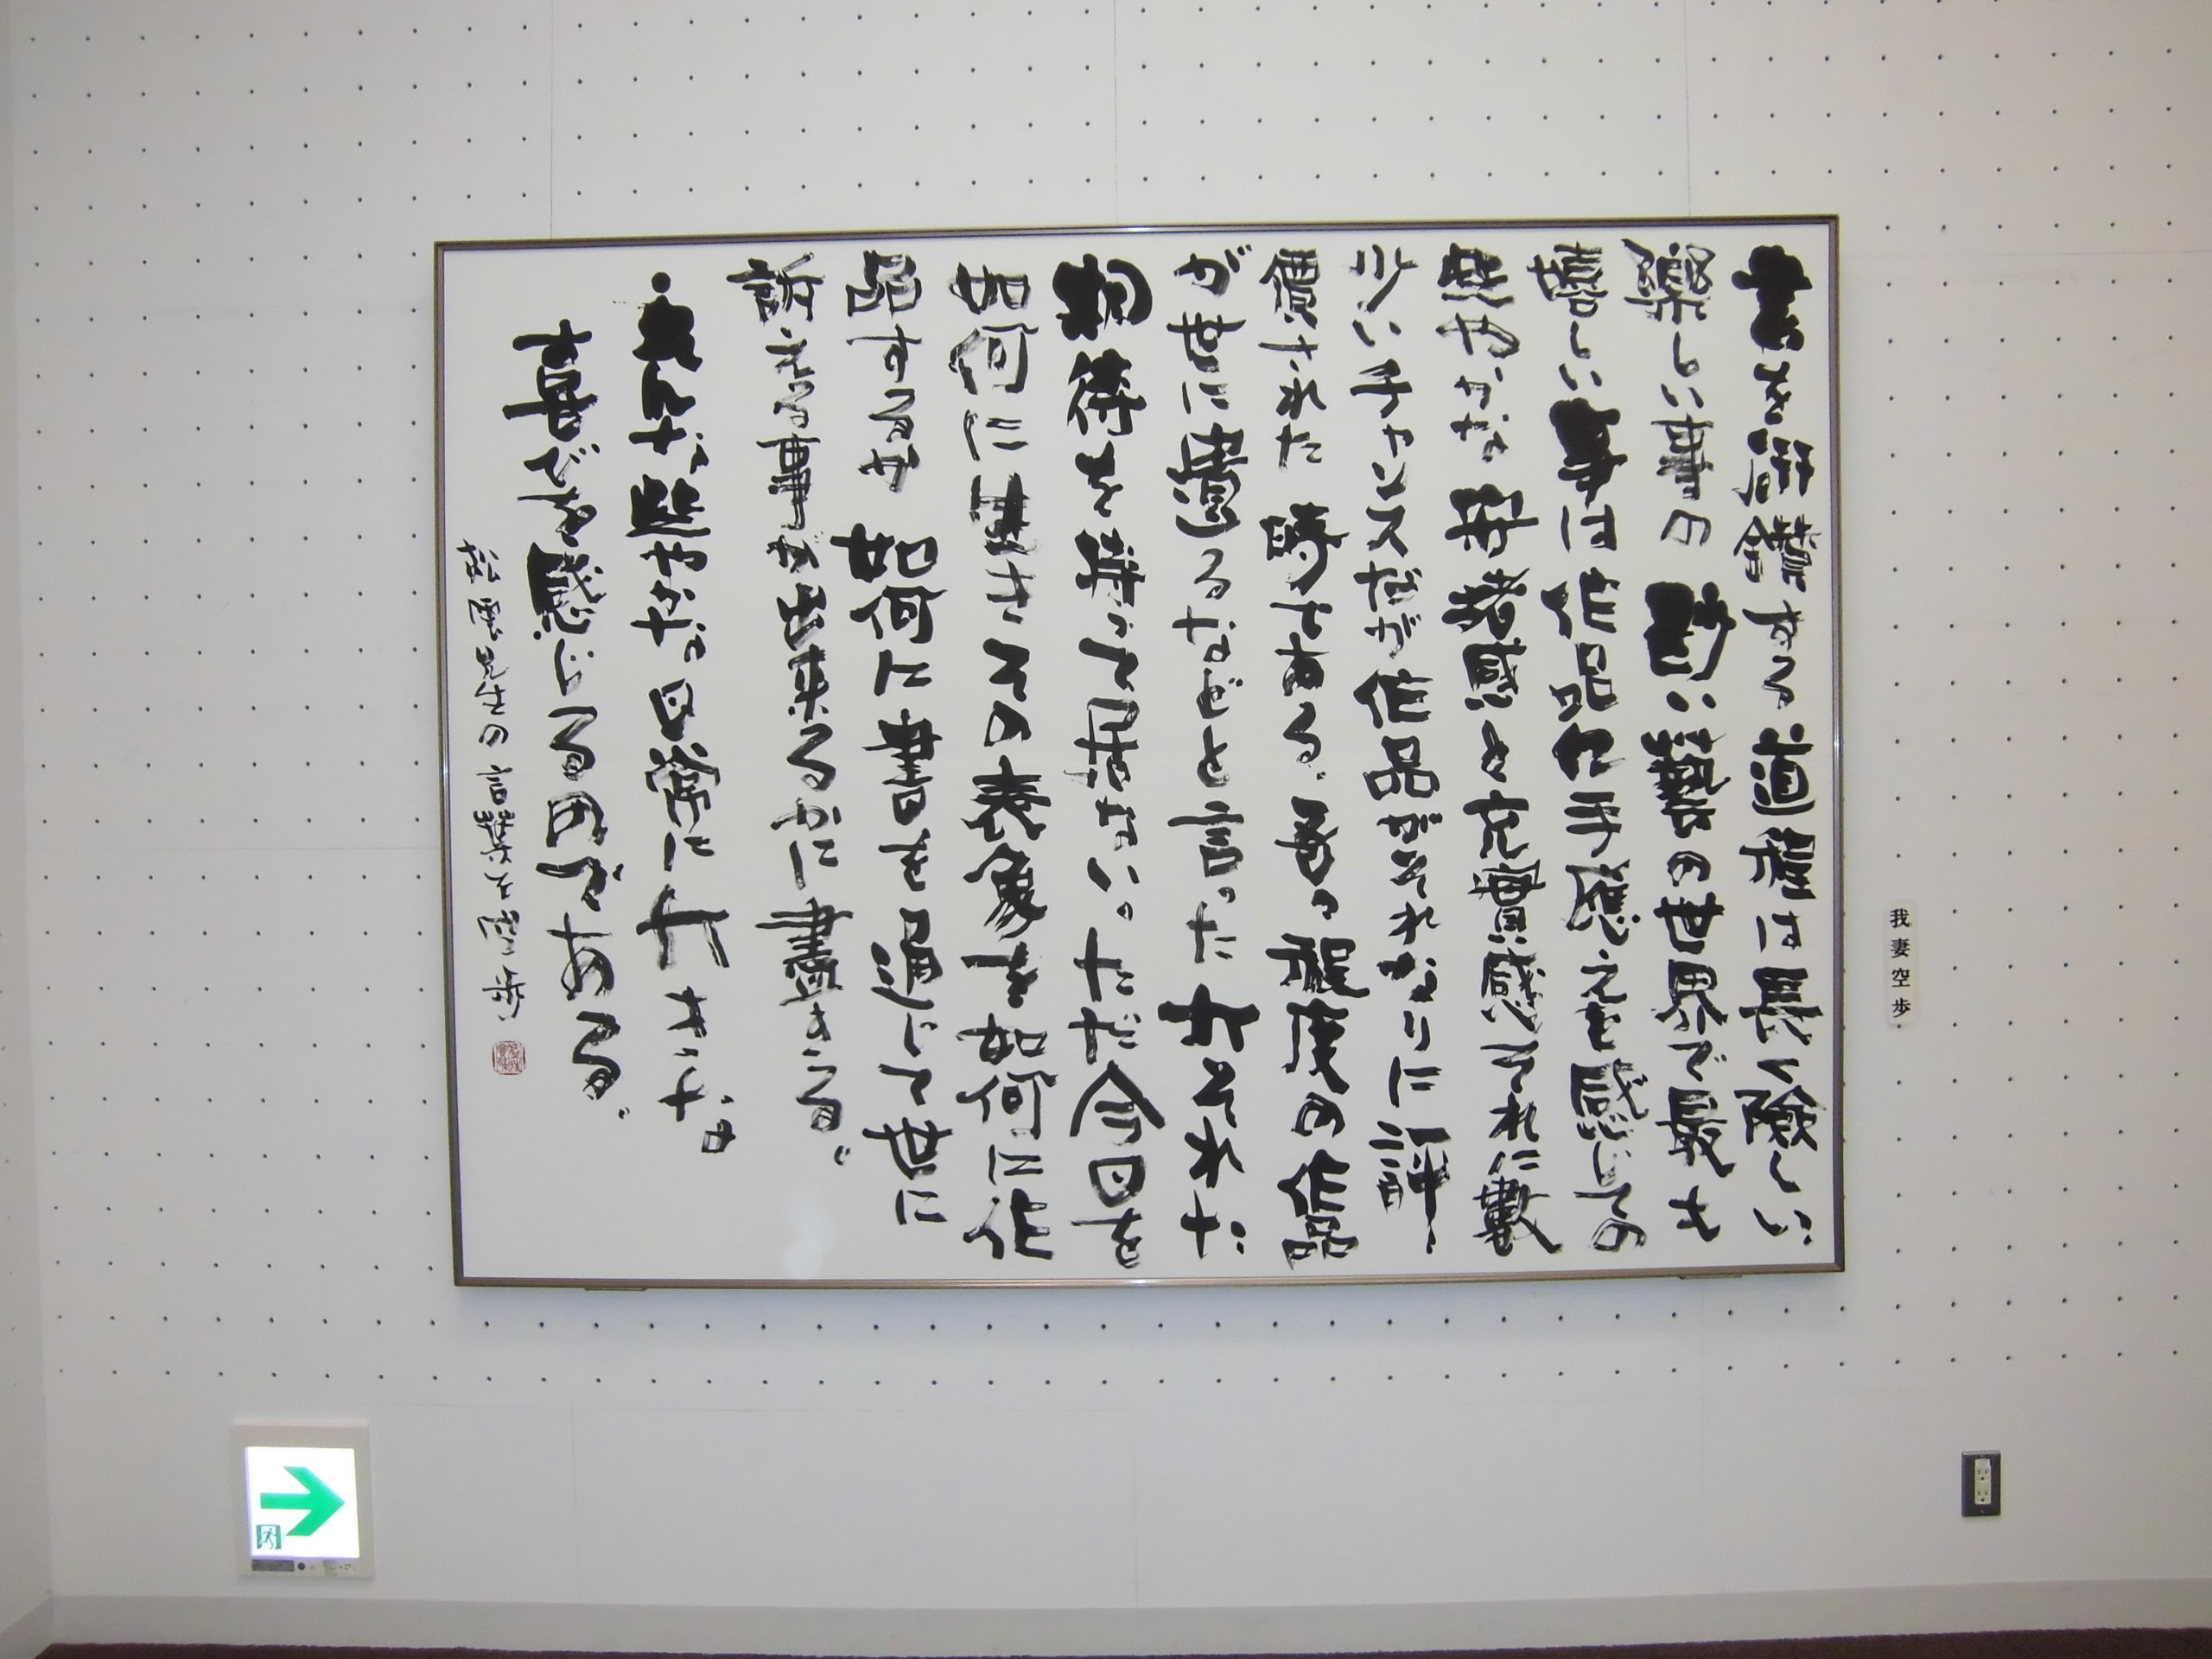 書を研鑽する道程は長く険しい
樂しい事の尠い藝の世界で最も
嬉しい事は作品に手應えを感じての
些やかな安堵感と充實感それに數
少いチャンスだが作品がそれなりに評
價された時である。吾々程度の作品
が世に遺るなどと言った大それた
期待を持って居ない。ただ今日を
如何に生きその表象を如何に作
品するか 如何に書を通じて世に
訴える事が出来るかに盡きる。
そんな些やかな日常に大きな
喜びを感じるのである。
松雲先生の言葉を 空歩
我妻空歩